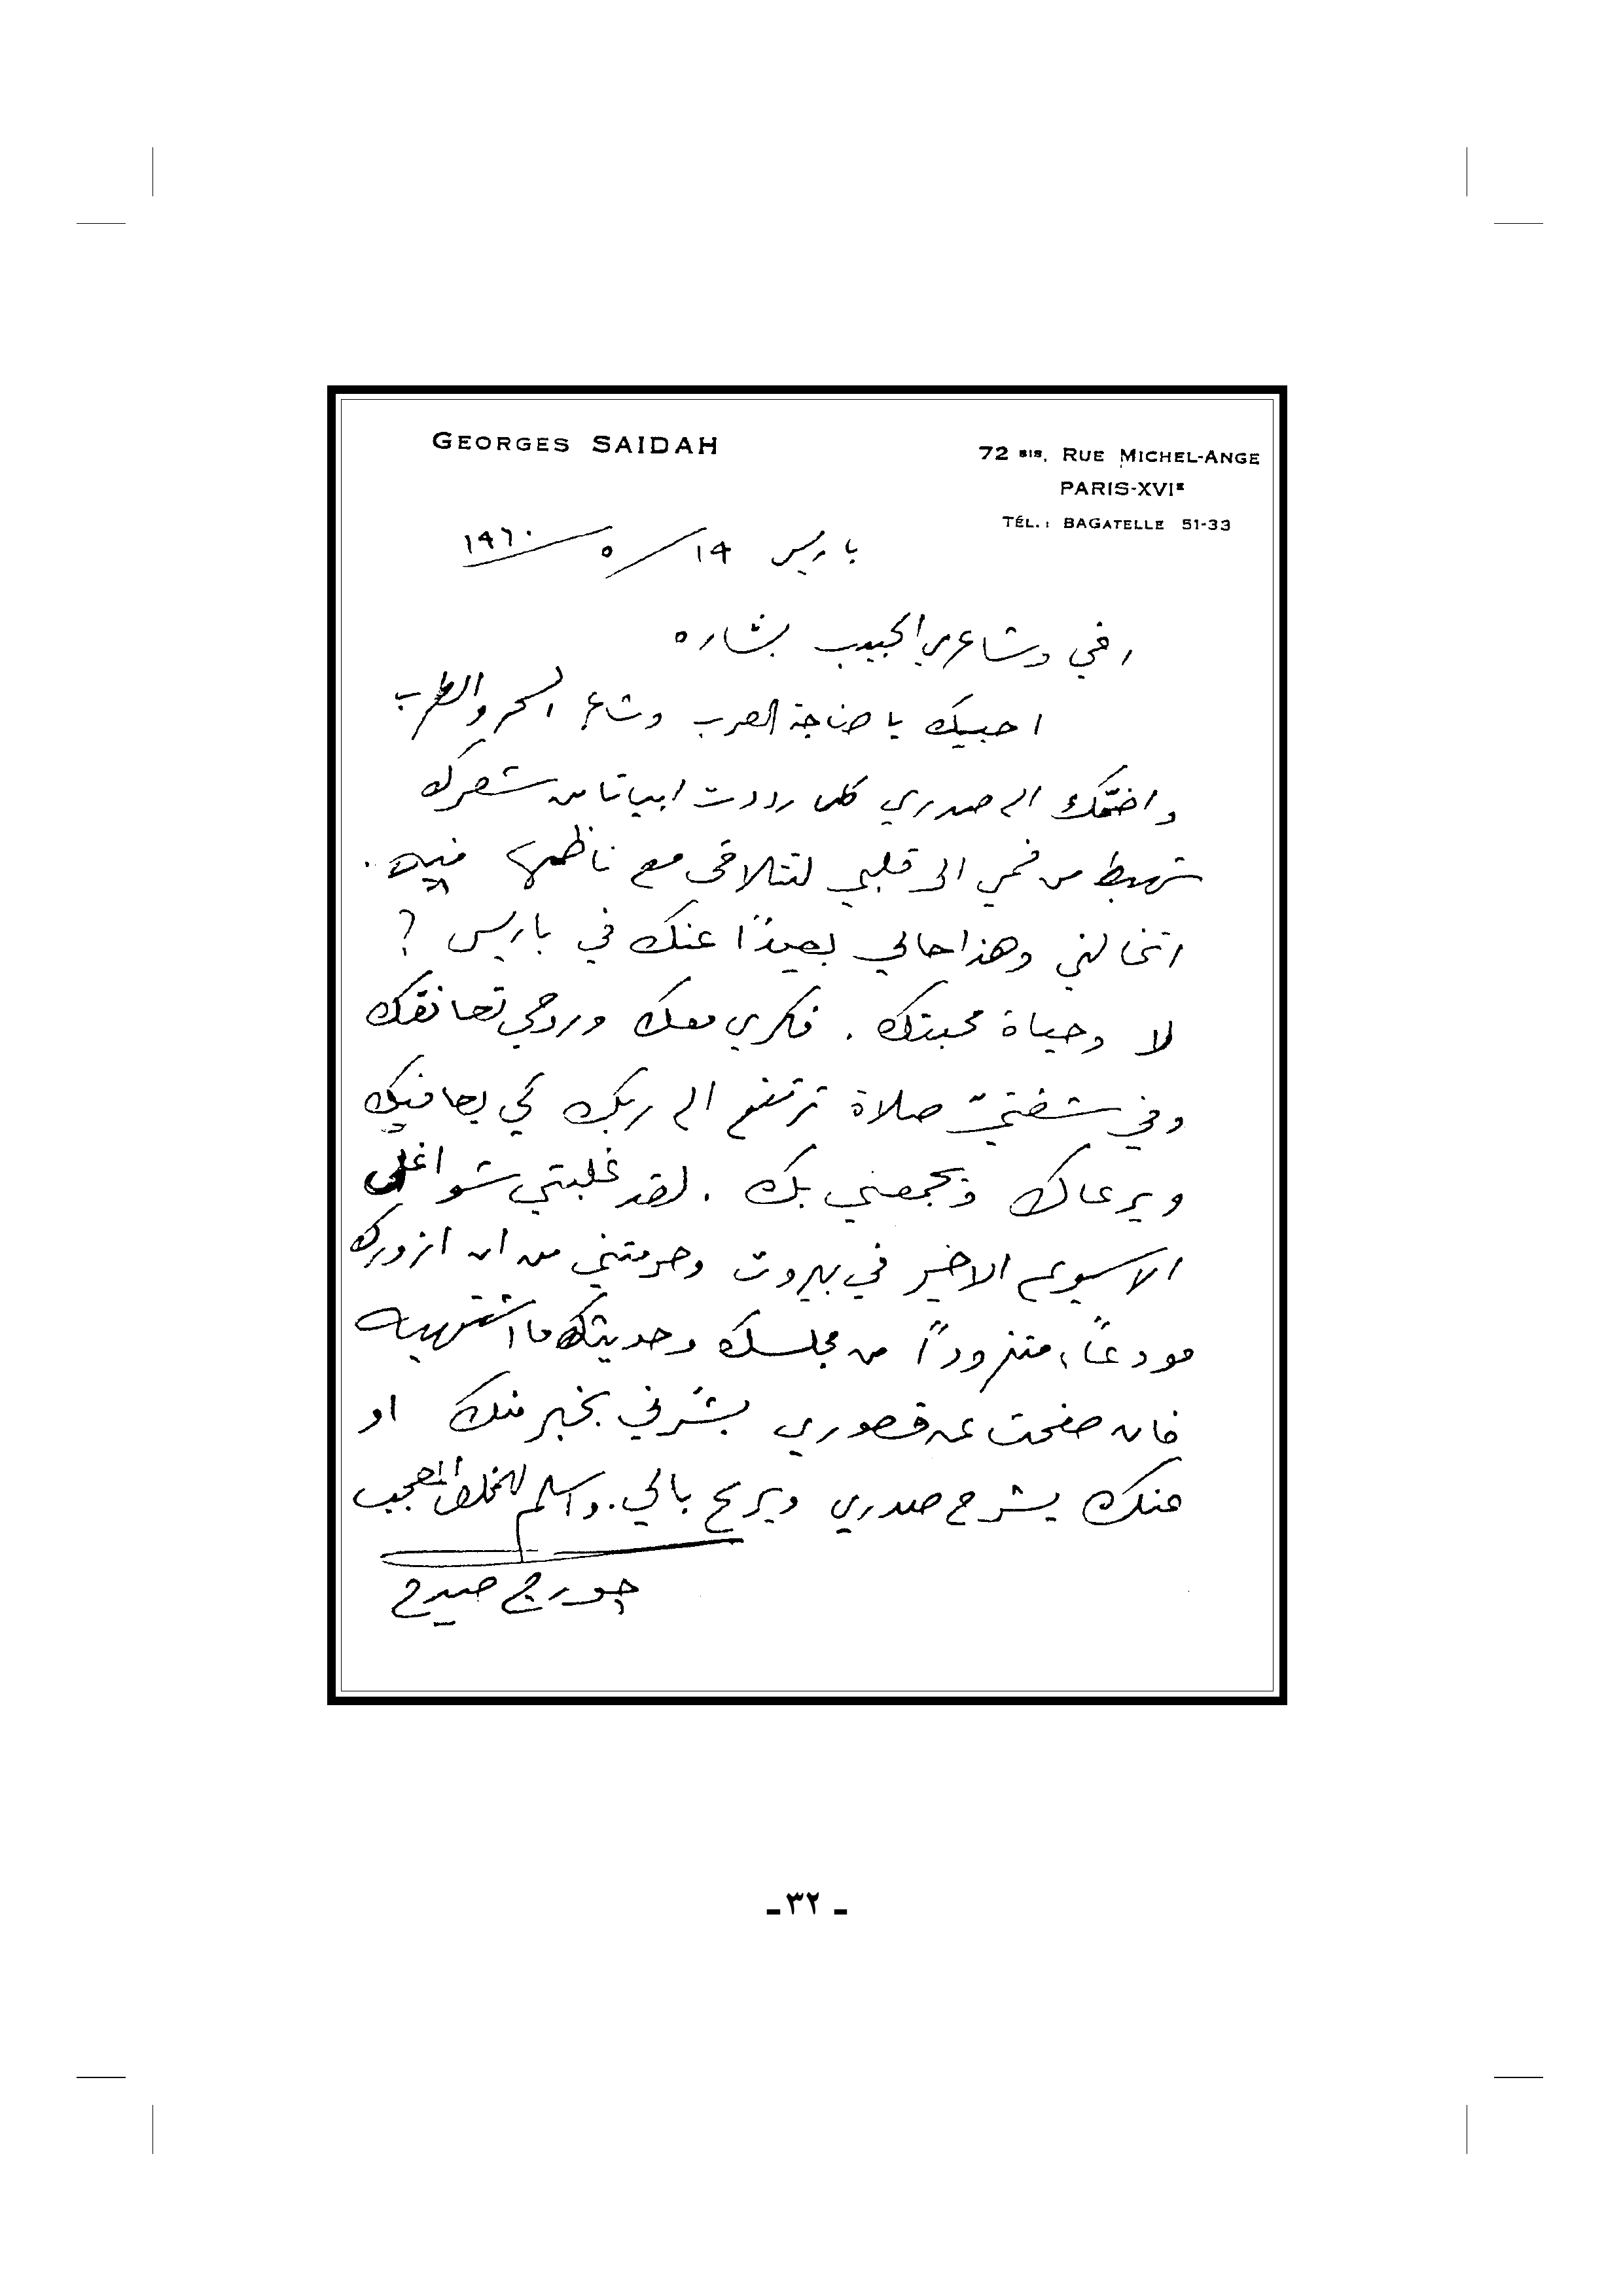 GEORGES SAIDAH
72 BIS, RUE MICHEL-ANGE
PARIS-XVIE
TÉL.: BAGATELLE 51-33
باريس ١٩/٥/١٩٦٠
اخي وشاعري الحبيب بشاره
احييك يا صناجة العرب وشاعر السحر والطرب
واضمّك الى صدري كلما رددت ابياتا من شعرك
تهبط من فمي الى قلبي لتتلاقى مع ناظمها فيه.
اتخالني وهذا حالي بعيدًا عنك في باريس ؟
لا وحياة محبتك . فكري معك وروحي تعانقك
وفي شفتيّ صلاة ترتفع الى ربك كي يعافيك
ويرعاك ويجمعني بك . لقد غلبتني شواغل
الاسبوع الاخير في بيروت وحرمتني من ان ازورك
مودعاً، متزوداً من مجلسك وحديثك ما اشتهيه
فان صفحت عن قصوري بشّرني بخبر منك او
عنك يشرح صدري ويريح بالي. واسلم للمخلص المعجب
جورج صيدح
ـ ٣٢ ـ